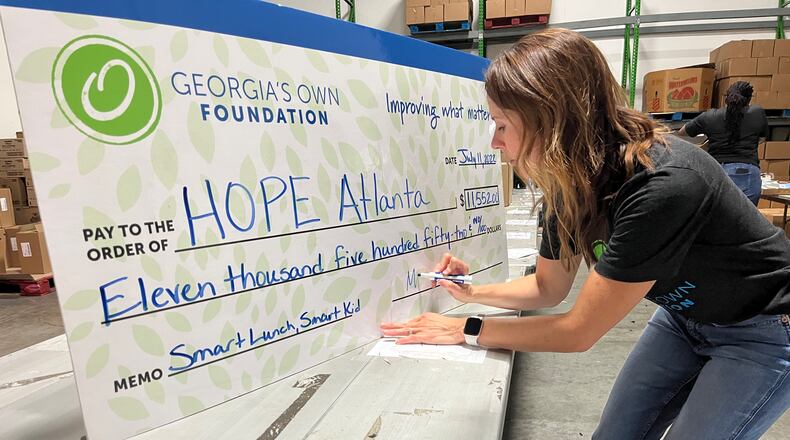 GEORGIA'S OWN
FOUNDATION
Improving what matter
DATE July 11, 2022
PAY TO THE
ORDER OF HOPE Atlanta $ 11552.00
Eleven thousand five hundred fifty-two & no/100 DOLLARS
MEMO Smart Lunch, Smart Kid
M
OWN